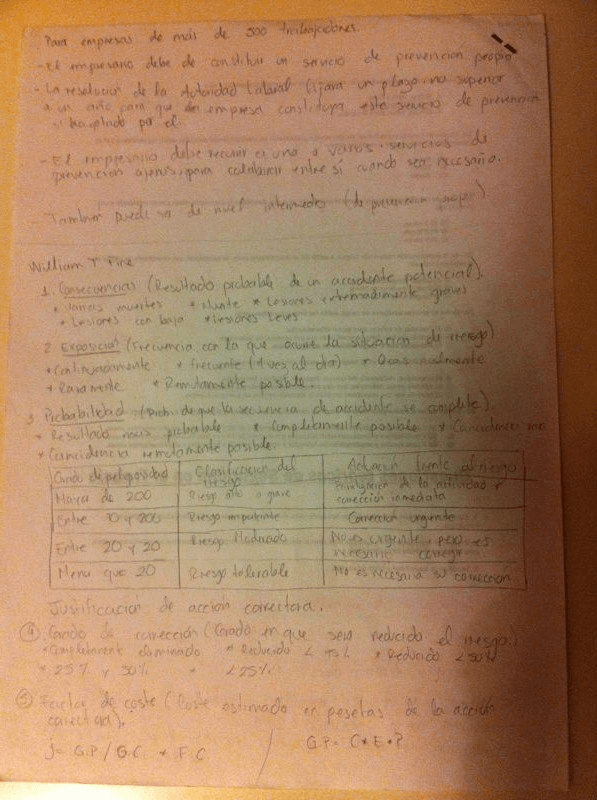 Para empresas de más de 500 trabajadores.
- El empresario debe de constituir un servicio de prevencion propio
- La resolución de la Autoridad Laboral fijara un plazo no superior
a un año para que la empresa constituya este servicio de prevencion
por el
- El empresario debe recurrir a uno o varios servicios de
prevencion ajenos, para colaborar entre sí cuando sea necesario.
También puede ser de nivel intermedio (de prevencion propio)
William T. Fine
1. Consecuencias (Resultado probable de un accidente potencial).
* Varias muertes * Muerte * Lesiones extremadamente graves
* Lesiones con baja * Lesiones Leves
2. Exposición (Frecuencia con la que ocurre la situación de riesgo)
* Continuadamente * Frecuente (1 vez al día) * Ocasionalmente
* Raramente * Remotamente posible.
3. Probabilidad (Prob. de que la secuencia de accidente se complete).
* Resultado más probable * Completamente posible * Coincidencia rara
* Coincidencia remotamente posible.
Grado de peligrosidad Clasificación del riesgo Actuación frente al riesgo
Mayor de 200 Riesgo alto o grave de la actividad y corrección inmediata
Entre y 200 Riesgo importante Corrección urgente
Entre 20 y Riesgo Moderado No es urgente, pero es necesario corregir
Menor que 20 Riesgo tolerable No es necesaria su corrección
Justificación de acción correctora.
4 Grado de corrección (Grado en que será reducido el riesgo.
* Completamente eliminado * Reducido < 75% * Reducido < 50%
* 25% y 50% * <25%.
5 Factor de coste (Coste estimado en pesetas de la acción
correctora).
j = G.P / G.C. * F.C / G.P = C * E * P